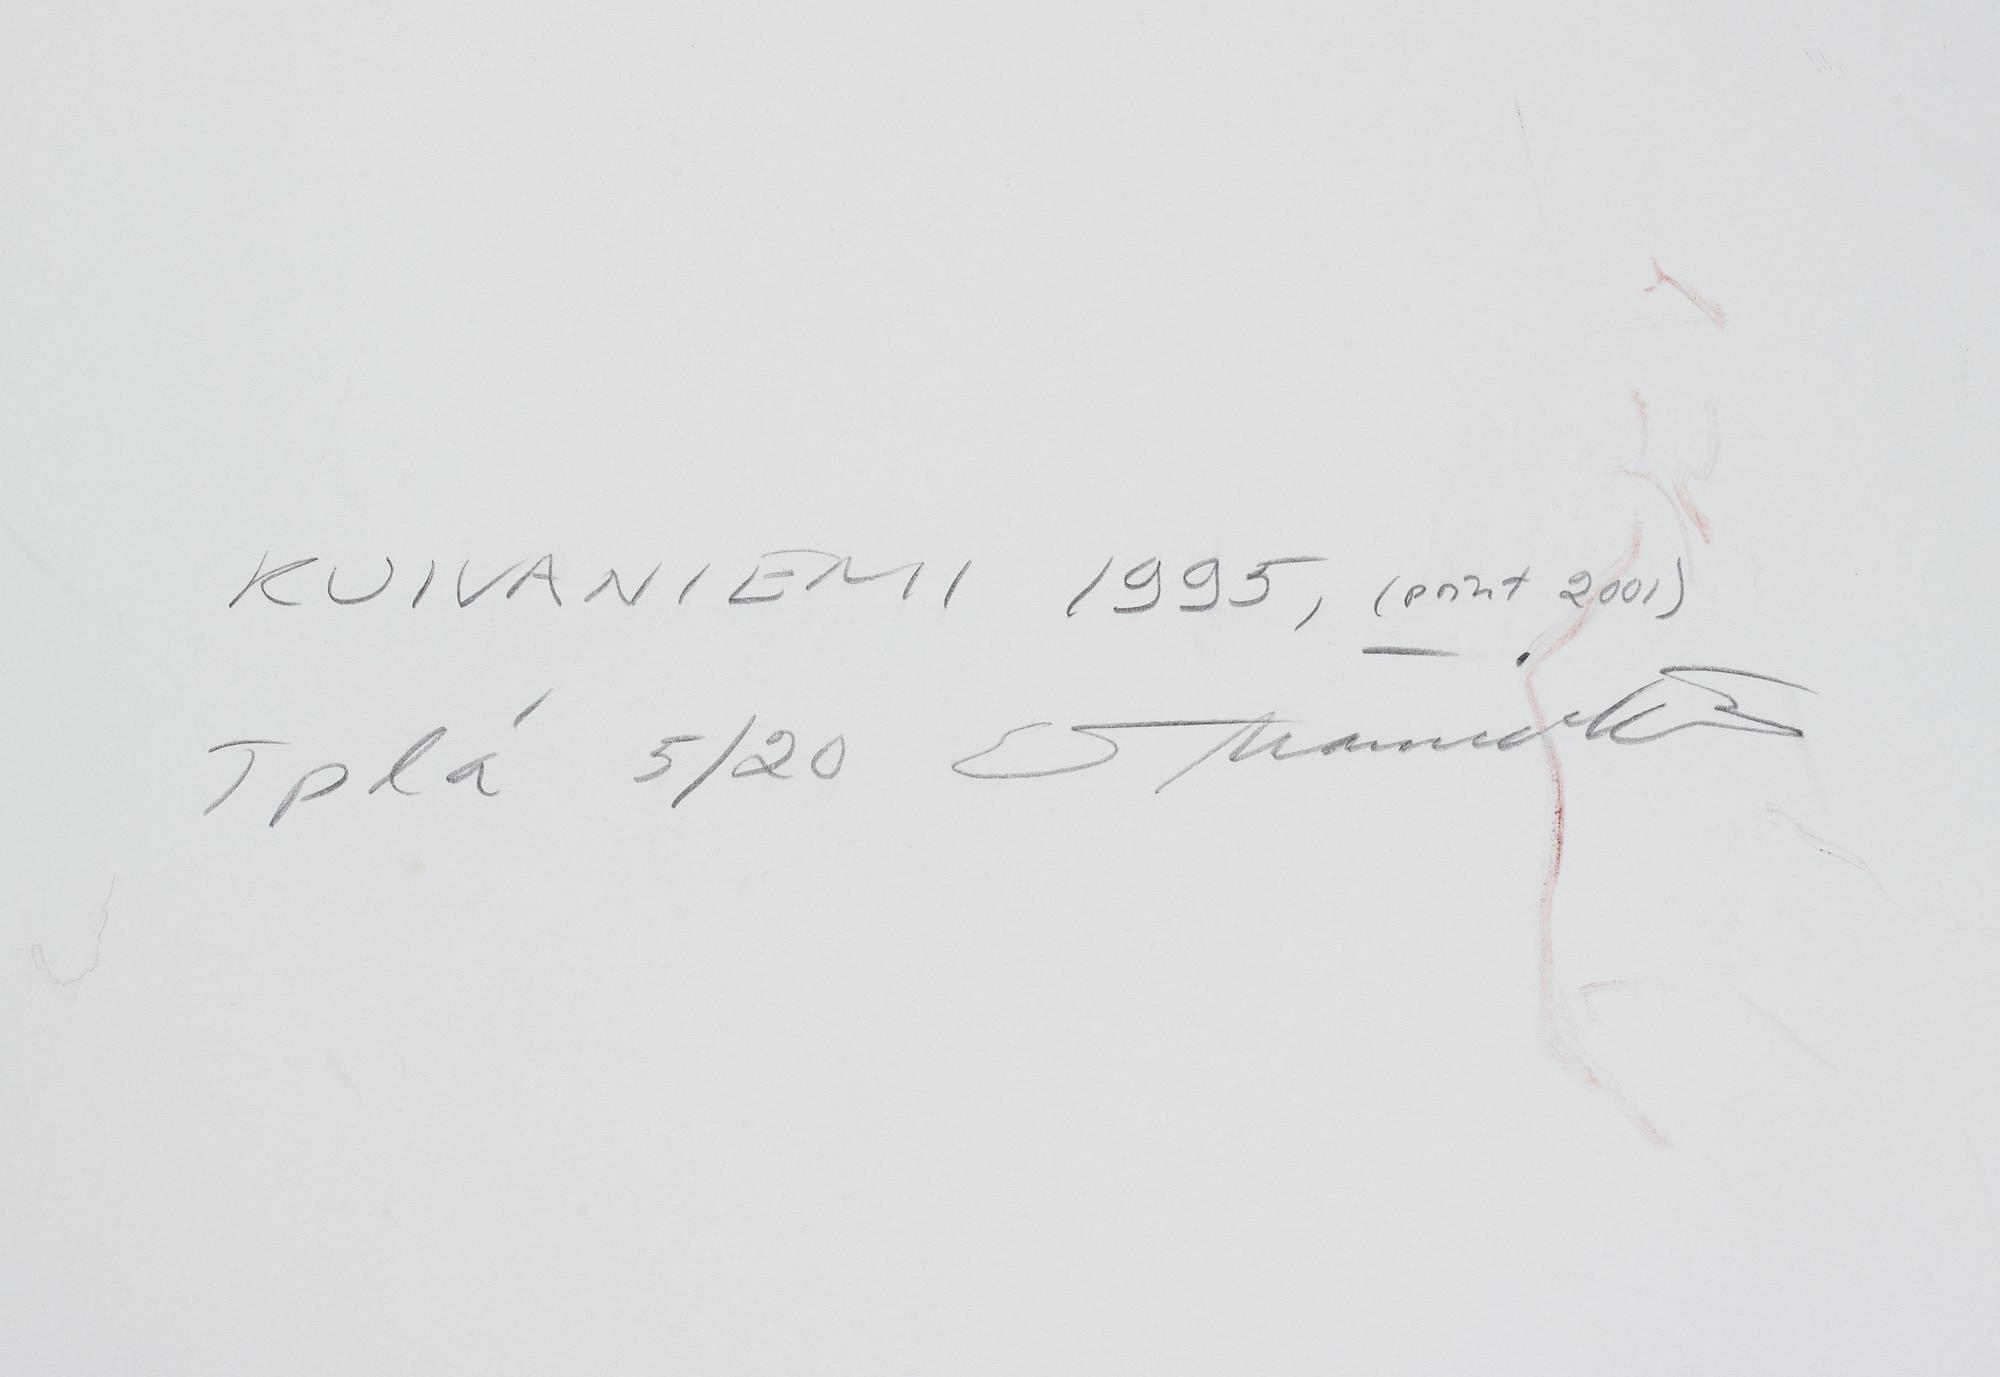 KUIVANIEMI 1995, (print 2001)
Tplá 5/20